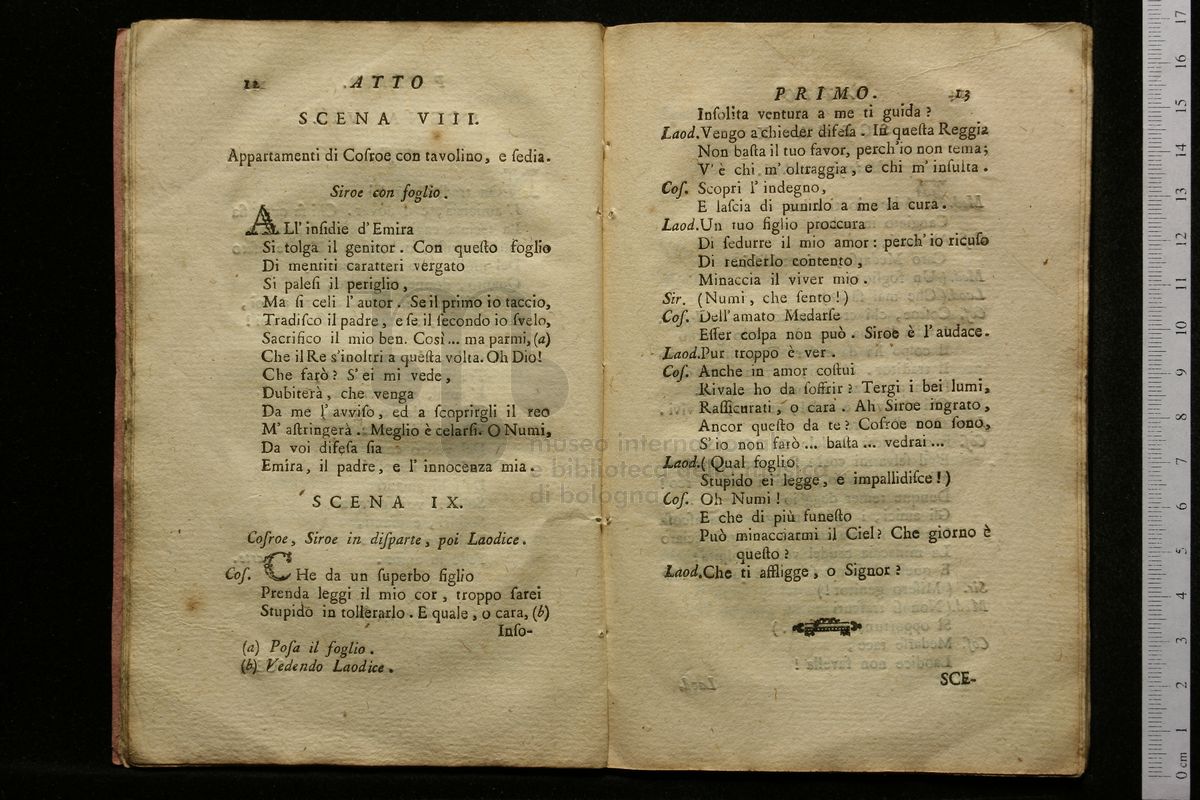 12 ATTO
SCENA VIII.
Appartamenti di Coſroe con tavolino, e ſedia.
Siroe con foglio.
ALl' inſidie d' Emira
Si tolga il genitor. Con queſto foglio
Di mentiti caratteri vergato
Si paleſi il periglio,
Ma ſi celi l' autor. Se il primo io taccio,
Tradiſco il padre, e ſe il ſecondo io ſvelo,
Sacrifico il mio ben. Così ... ma parmi, (a)
Che il Re s'inoltri a queſta volta. Oh Dio!
Che farò? S' ei mi vede,
Dubiterà, che venga
Da me l' avviſo, ed a ſcoprirgli il reo
M' aſtringerà. Meglio è celarſi. O Numi,
Da voi difeſa ſia
Emira, il padre, e l' innocenza mia.
SCENA IX.
Coſroe, Siroe in diſparte, poi Laodice.
Coſ. CHe da un ſuperbo figlio
Prenda leggi il mio cor, troppo ſarei
Stupido in tollerarlo. E quale, o cara, (b)
Inſo-
(a) Poſa il foglio.
(b) Vedendo Laodice.
PRIMO. 13
Inſolita ventura a me ti guida?
Laod. Vengo a chieder difeſa. In queſta Reggia
Non baſta il tuo favor, perch'io non tema;
V' è chi m' oltraggia, e chi m' inſulta.
Coſ. Scopri l' indegno,
E laſcia di punirlo a me la cura.
Laod. Un tuo figlio proccura
Di ſedurre il mio amor: perch' io ricuſo
Di renderlo contento,
Minaccia il viver mio.
Sir. (Numi, che ſento!)
Coſ. Dell' amato Medarſe
Eſſer colpa non può. Siroe è l' audace.
Laod. Pur troppo è ver.
Coſ. Anche in amor coſtui
Rivale ho da ſoffrir? Tergi i bei lumi,
Raſſicurati, o cara. Ah Siroe ingrato,
Ancor queſto da te? Coſroe non ſono,
S' io non farò ... baſta ... vedrai ...
Laod. (Qual foglio
Stupido ei legge, e impallidiſce!)
Coſ. Oh Numi!
E che di più funeſto
Può minacciarmi il Ciel? Che giorno è
queſto?
Laod. Che ti affligge, o Signor?
SCE-
museo internazionale
e biblioteca della musica
di bologna
0 cm 1 2 3 4 5 6 7 8 9 10 11 12 13 14 15 16 17